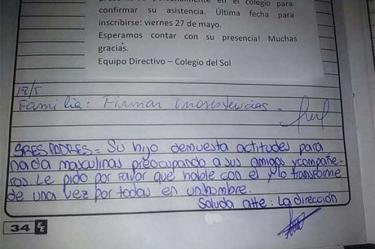 personalmente en el colegio para
confirmar su asistencia. Última fecha para
inscribirse: viernes 27 de mayo.
Esperamos contar con su presencia! Muchas
gracias.
Equipo Directivo – Colegio del Sol
18/5
Familia: Firmar inasistencias.
SRES PADRES = Su hijo demuestra actitudes para
nada masculinas preocupando a sus amigos y compañe-
ros. Le pido por favor que hable con el y lo transforme
de una vez por todas en un hombre.
Saluda atte: La dirección
34